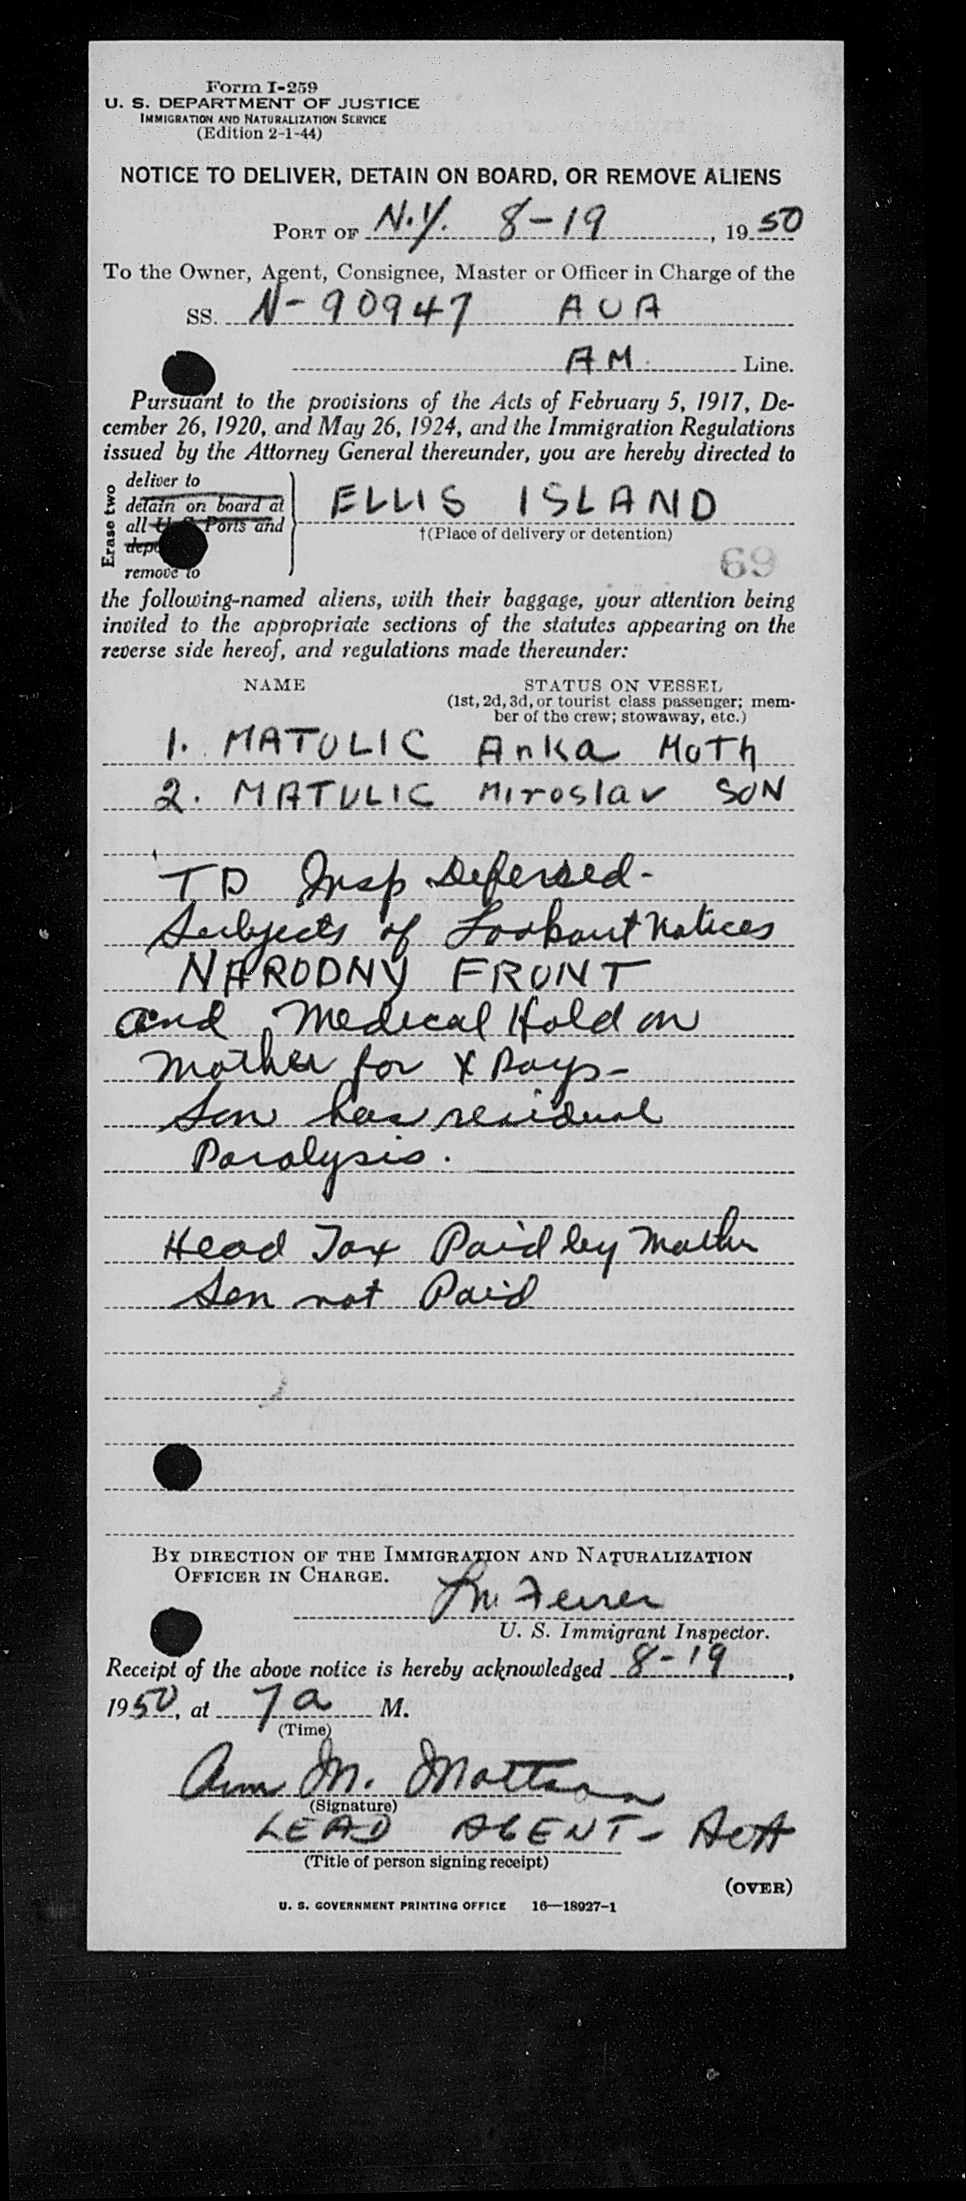 Form I-259
U. S. DEPARTMENT OF JUSTICE
IMMIGRATION AND NATURALIZATION SERVICE
(Edition 2-1-44)
NOTICE TO DELIVER, DETAIN ON BOARD, OR REMOVE ALIENS
PORT OF N.Y. 8-19, 1950
To the Owner, Agent, Consignee, Master or Officer in Charge of the
SS. N-90947 AOA
AM. Line.
Pursuant to the provisions of the Acts of February 5, 1917, De-
cember 26, 1920, and May 26, 1924, and the Immigration Regulations
issued by the Attorney General thereunder, you are hereby directed to
Erase two
deliver to
detain on board at
all U S Ports and
remove to
ELLIS ISLAND
†(Place of delivery or detention)
69
the following-named aliens, with their baggage, your attention being
invited to the appropriate sections of the statutes appearing on the
reverse side hereof, and regulations made thereunder:
NAME STATUS ON VESSEL
(1st, 2d, 3d, or tourist class passenger; mem-
ber of the crew; stowaway, etc.)
1. MATULIC Anka MoTh
2. MATULIC Miroslav SON
TD Insp Deferred-
Subjects of Lookout Notices
NARODNY FRONT
and Medical Hold on
Mother for X Rays-
Son has residual
Paralysis.
Head Tax Paid by Mother
Son not Paid
BY DIRECTION OF THE IMMIGRATION AND NATURALIZATION
OFFICER IN CHARGE.
U. S. Immigrant Inspector.
Receipt of the above notice is hereby acknowledged 8-19,
1950, at 7 a M.
(Time)
Ann M. Mattson
(Signature)
LEAD AGENT- AOA
(Title of person signing receipt)
(OVER)
U. S. GOVERNMENT PRINTING OFFICE 16—18927-1